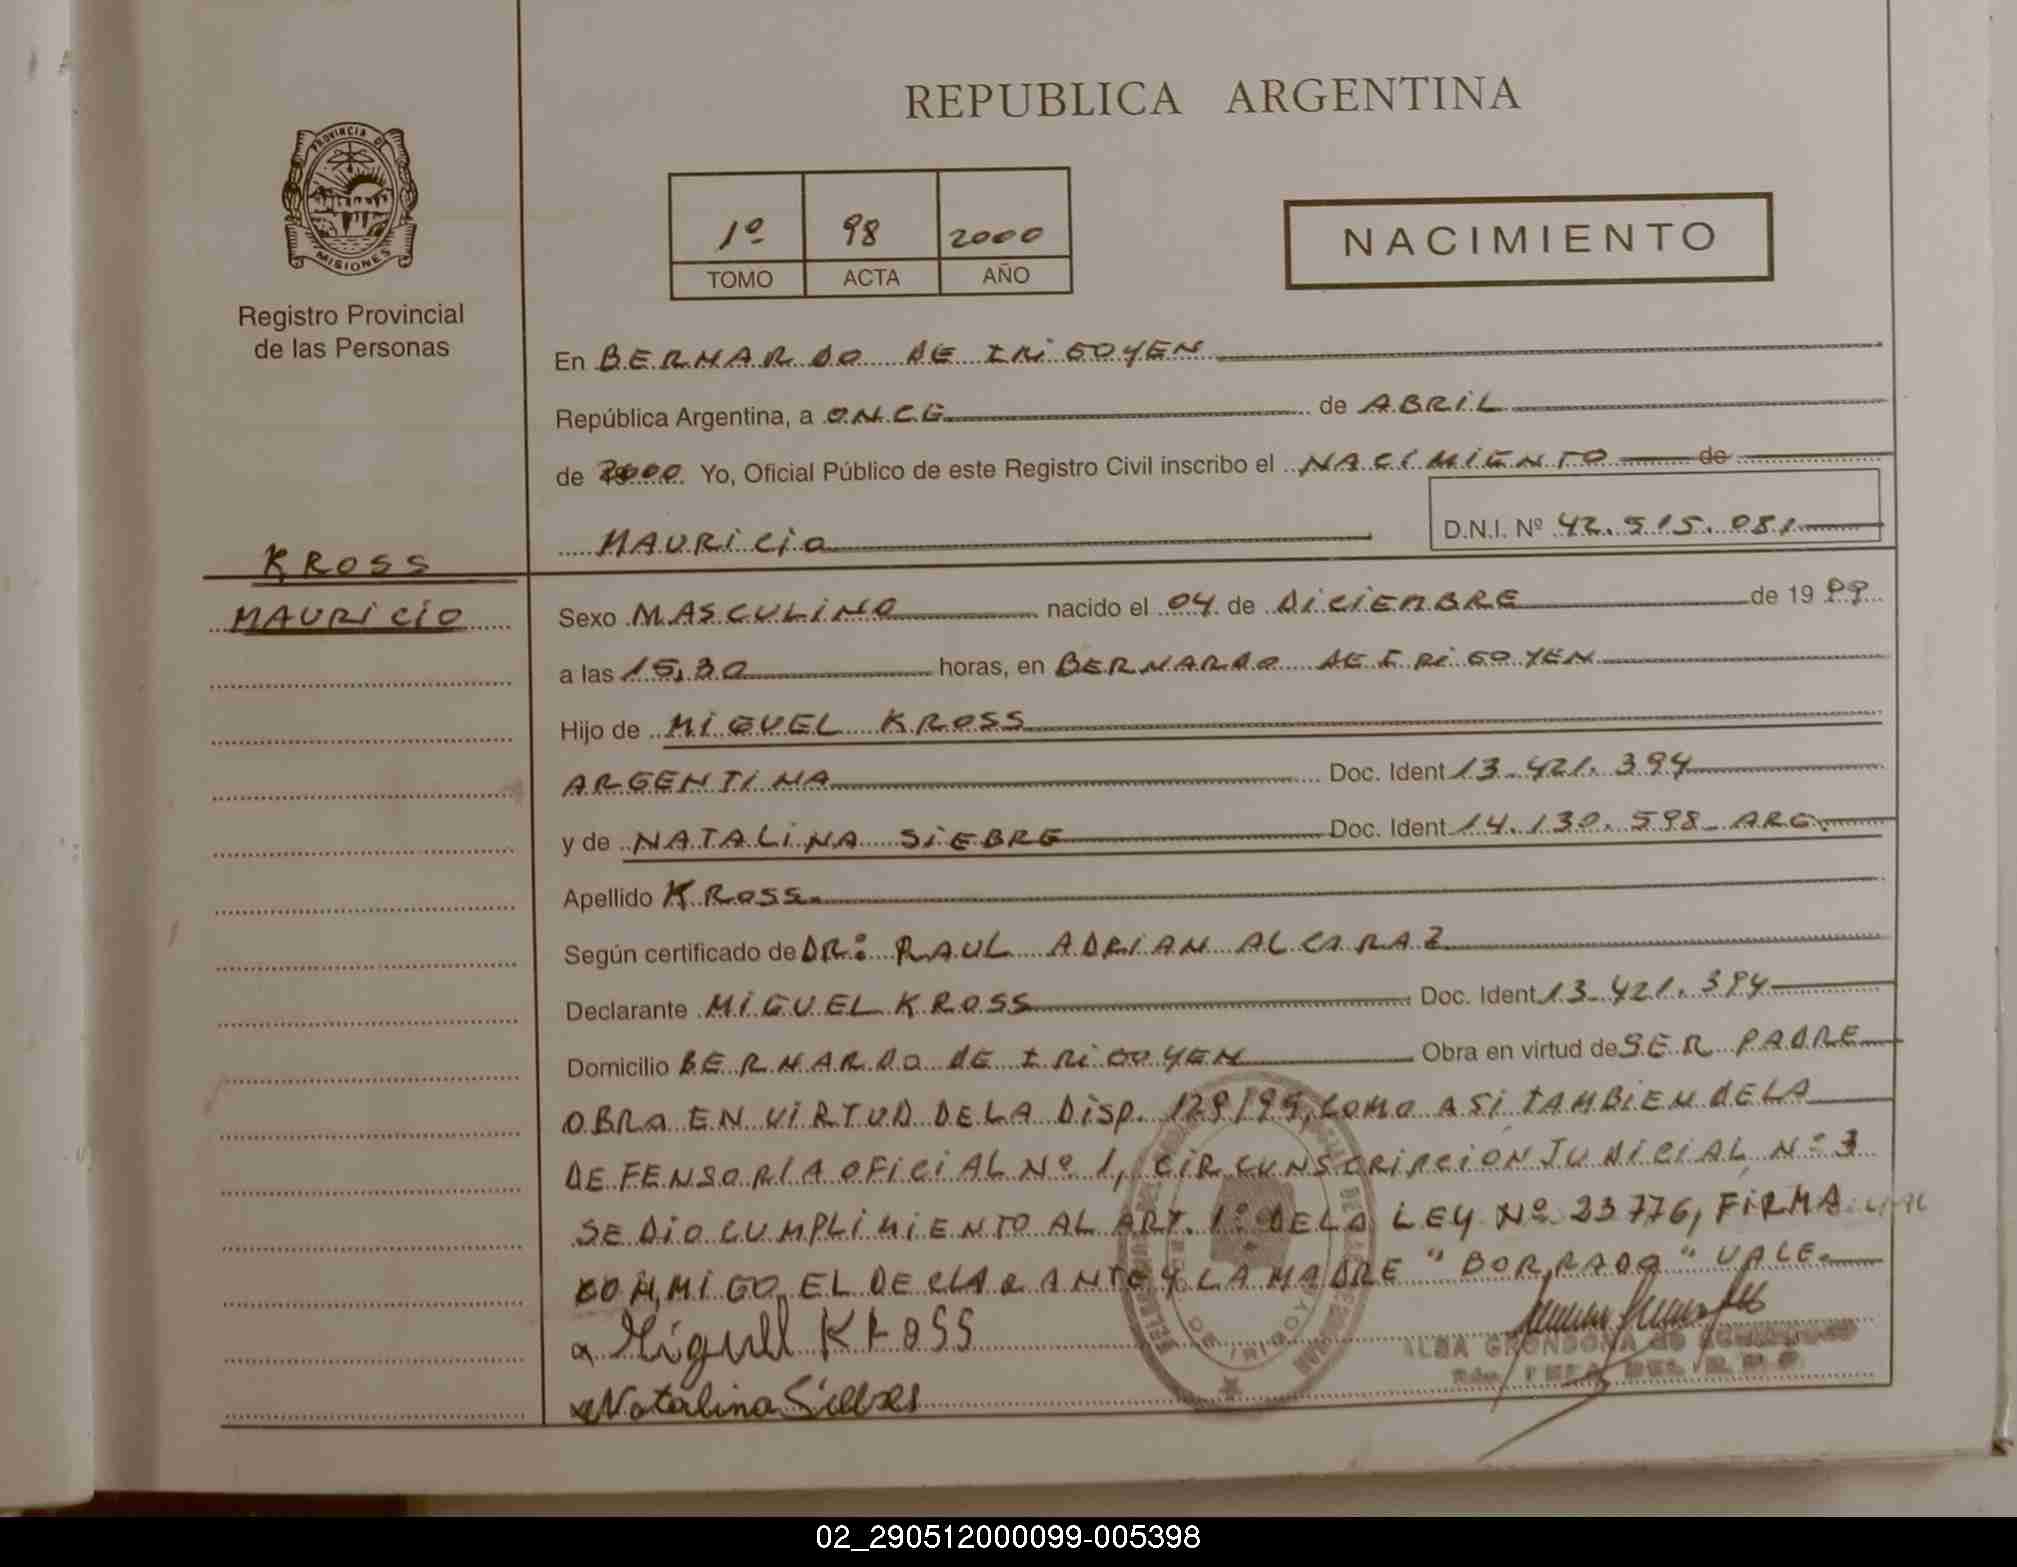 REPUBLICA ARGENTINA
PROVINCIA DE
MISIONES
Registro Provincial
de las Personas
1º 98 2000
TOMO ACTA AÑO
NACIMIENTO
En BERNARDO DE IRIGOYEN
República Argentina, a ONCE de ABRIL
de 2000 Yo, Oficial Público de este Registro Civil inscribo el NACIMIENTO de
MAURICIO D.N.I. Nº 42.515.081
KROSS
MAURICIO
Sexo MASCULINO nacido el 04 de DICIEMBRE de 1999
a las 15,30 horas, en BERNARDO DE IRIGOYEN
Hijo de MIGUEL KROSS
ARGENTINA Doc. Ident 13.421.394
y de NATALINA SIEBRE Doc. Ident 14.130.598 ARG.
Apellido KROSS
Según certificado de DR: RAUL ADRIAN ALCARAZ
Declarante MIGUEL KROSS Doc. Ident 13.421.394
Domicilio BERNARDO DE IRIGOYEN Obra en virtud de SER PADRE
OBRA EN VIRTUD DE LA DISP. 129/99, COMO ASI TAMBIEN DE LA
DEFENSORIA OFICIAL Nº 1, CIRCUNSCRIPCION JUDICIAL Nº 3
SE DIO CUMPLIMIENTO AL ART. 1º DE LA LEY Nº 23776, FIRMA
CONMIGO EL DECLARANTE Y LA MADRE "BORRADO" VALE
Miguel KROSS
Natalina
ALBA GRONDONA de
02_290512000099-005398